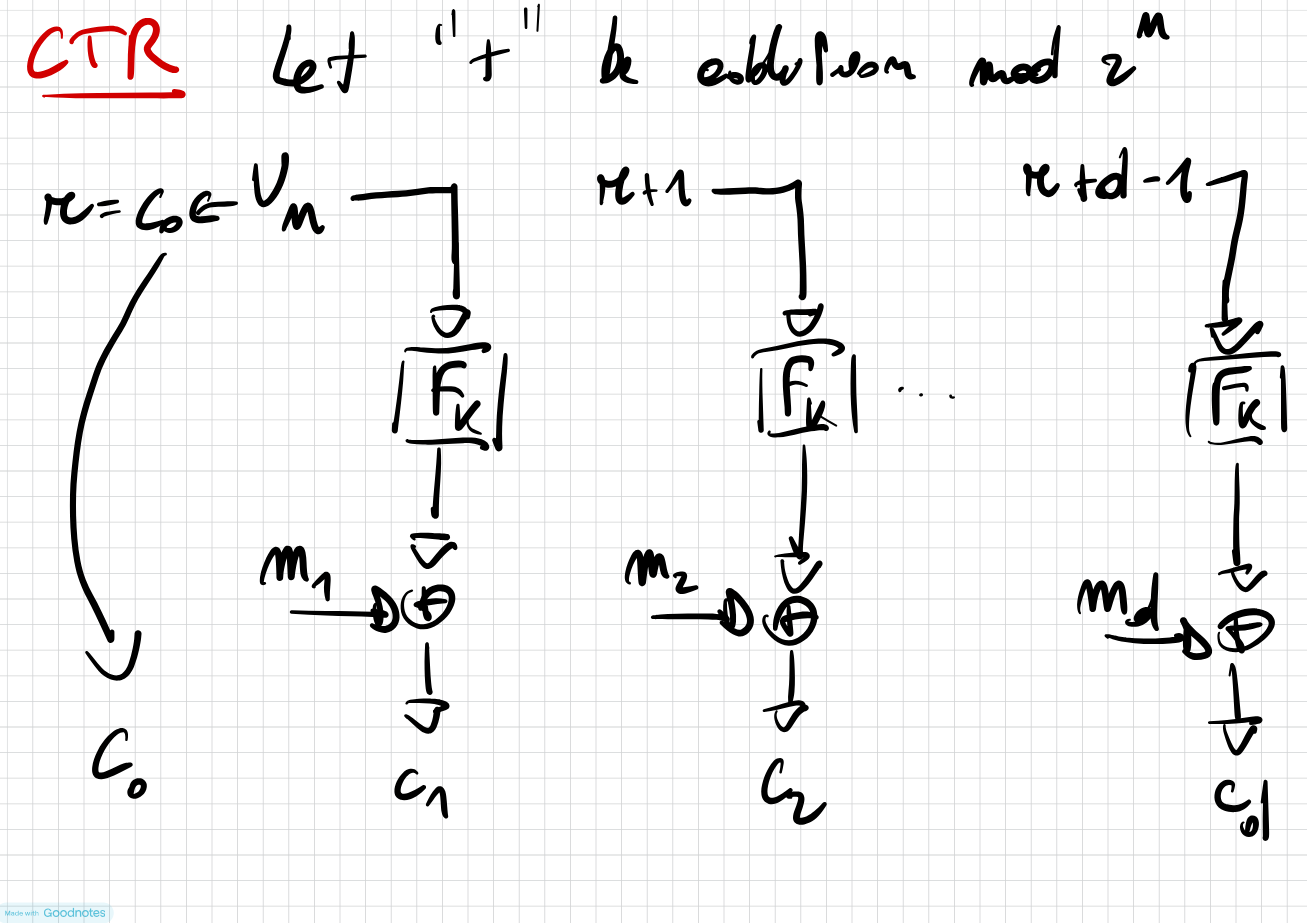 CTR Let "+" be addition mod 2^n
r = c₀ ← Uₙ r+1 r+d-1
F_K F_K ... F_K
m₁ m₂ m_d
⊕ ⊕ ⊕
C₀ c₁ c₂ c_d
Made with Goodnotes